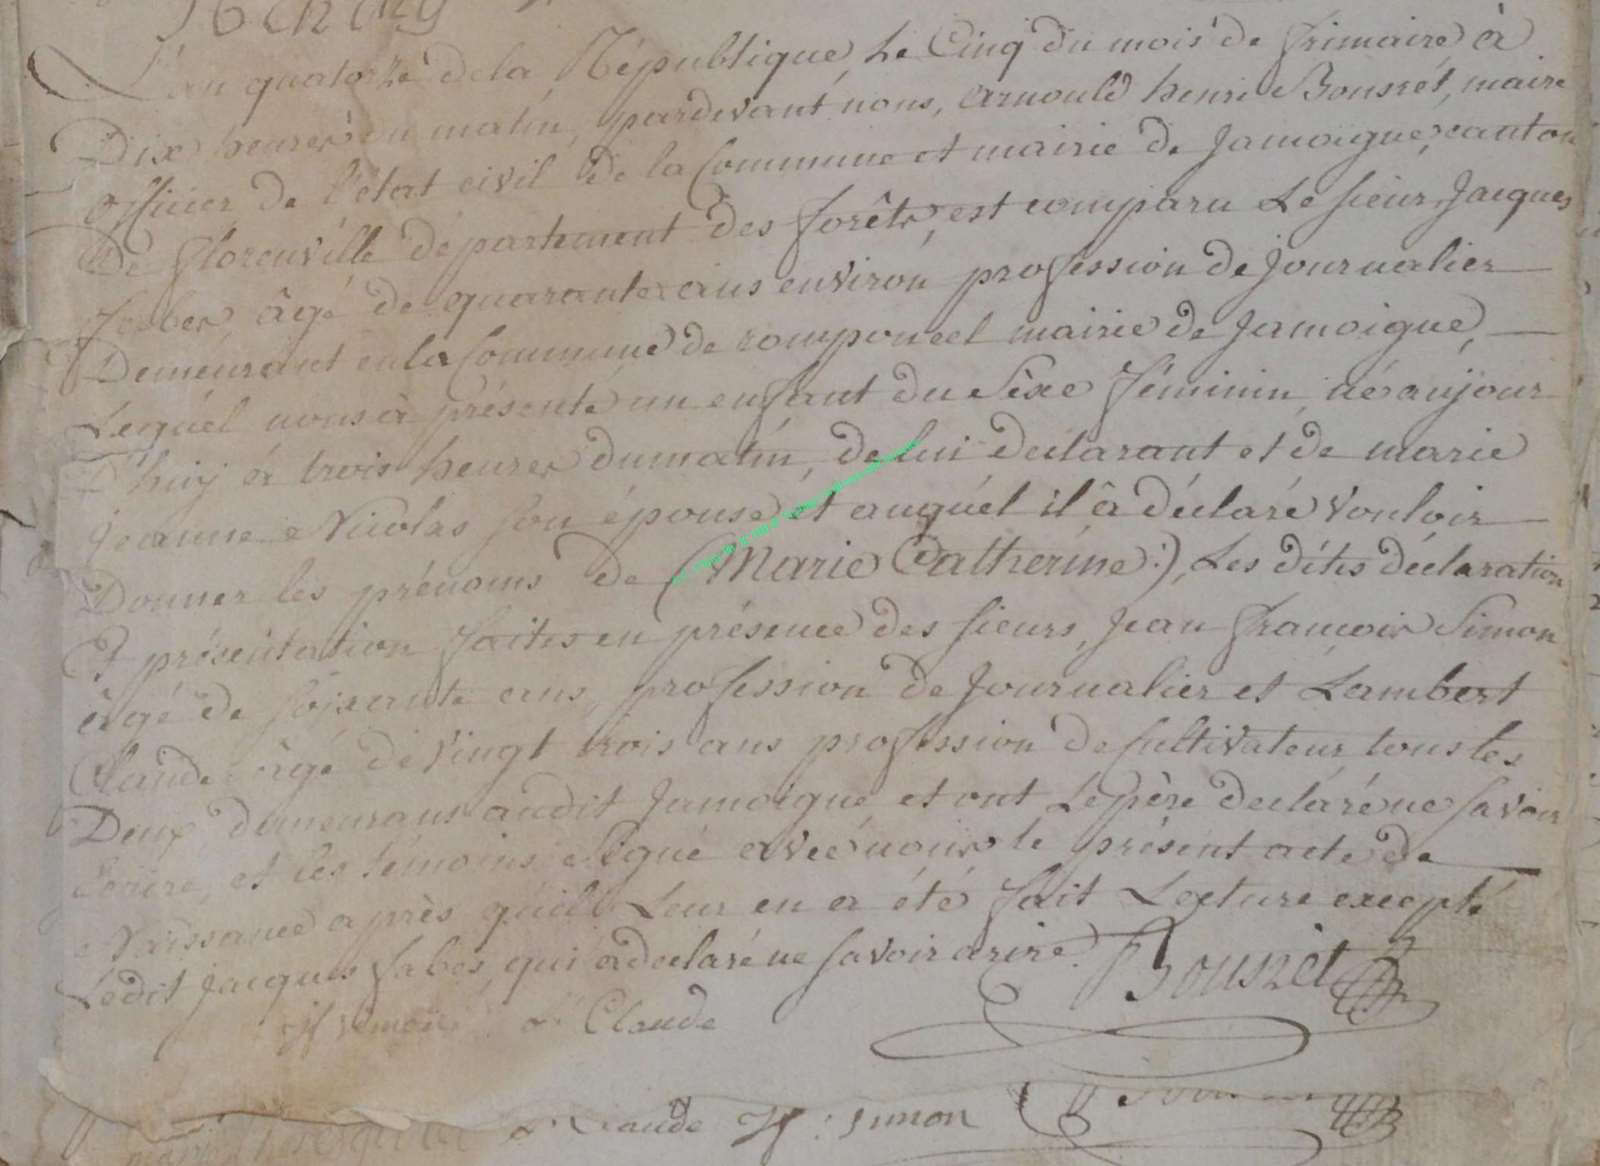 L'an quatorze de la République, Le Cinq du mois de frimaire à
Dix heures du matin, pardevant nous, arnould henri Bousrét, maire
officier de l'état civil de la Commune et mairie de Jamoigne, canton
De florenville département des forêts, est comparu Le sieur Jacques
âgé de quarante ans environ profession de Journalier
Demeurant en la Commune de romponcel mairie de Jamoigne,
Lequél nous à présenté un enfant du Séxe féminin, né aujour
D'huy à trois heures du matin, de lui déclarant et de marie
jeanne Nicolas son épouse, et auquél il â déclaré vouloir
Donner les prénoms de (Marie Catherine:), Les dites déclaration
Et présentation faites en présence des sieurs, Jean françois Simon
âgé de soixante ans, profession de Journalier et Lambert
Claude âgé de vingt trois ans profession de Cultivateur tous les
Deux demeurans audit Jamoigne, et ont Le père declaré ne savoir
Ecrire, et les témoins Signé avec nous le présent acte de
Naissance après qu'il Leur en a été fait Lecture excepté
Ledit Jacques fabes, qui a declaré ne savoir Bousrét
jf simon Claude
Claude jf : simon